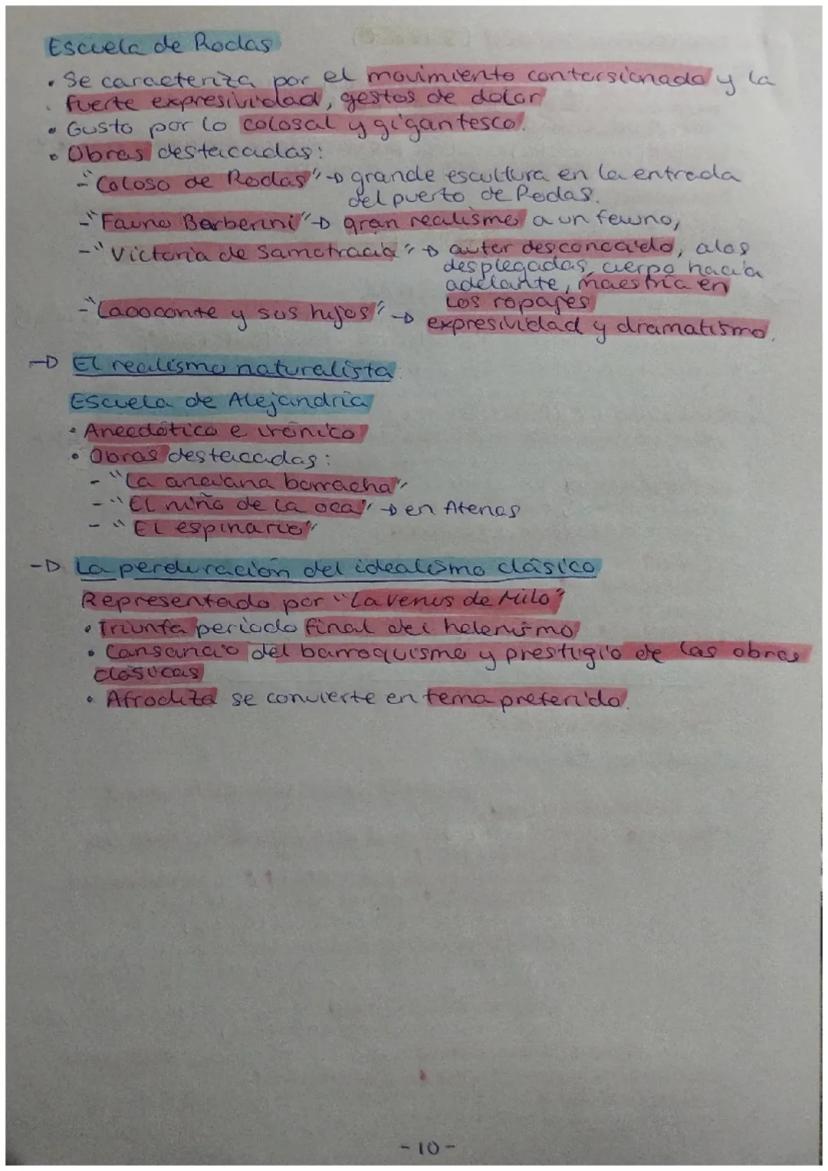 Escuela de Rodas
• Se caracteriza por el movimiento contorsionado y la
fuerte expresividad, gestos de dolor
• Gusto por lo colosal y gigantesco.
• Obras destacadas:
-"Coloso de Rodas" → grande escultura en la entrada
del puerto de Rodas.
-"Fauno Barberini" → gran realismo a un
-"Victoria de Samotracia" → autor desconocido, alas
desplegadas, cuerpo hacia
adelante, maestría en
los ropajes
-"Laooconte y sus hijos" → expresividad y dramatismo.
→ El realismo naturalista
Escuela de Alejandría
• Anecdótico e irónico
• Obras destacadas:
- "La anciana borracha"
- "El niño de la oca" → en Atenas
- "El espinario"
→ La perduración del idealismo clásico
Representado por "La Venus de Milo"
• Triunfa período final del helenismo
• Cansancio del barroquismo y prestigio de las obras
clásicas
• Afrodita se convierte en tema preferido.
-10-